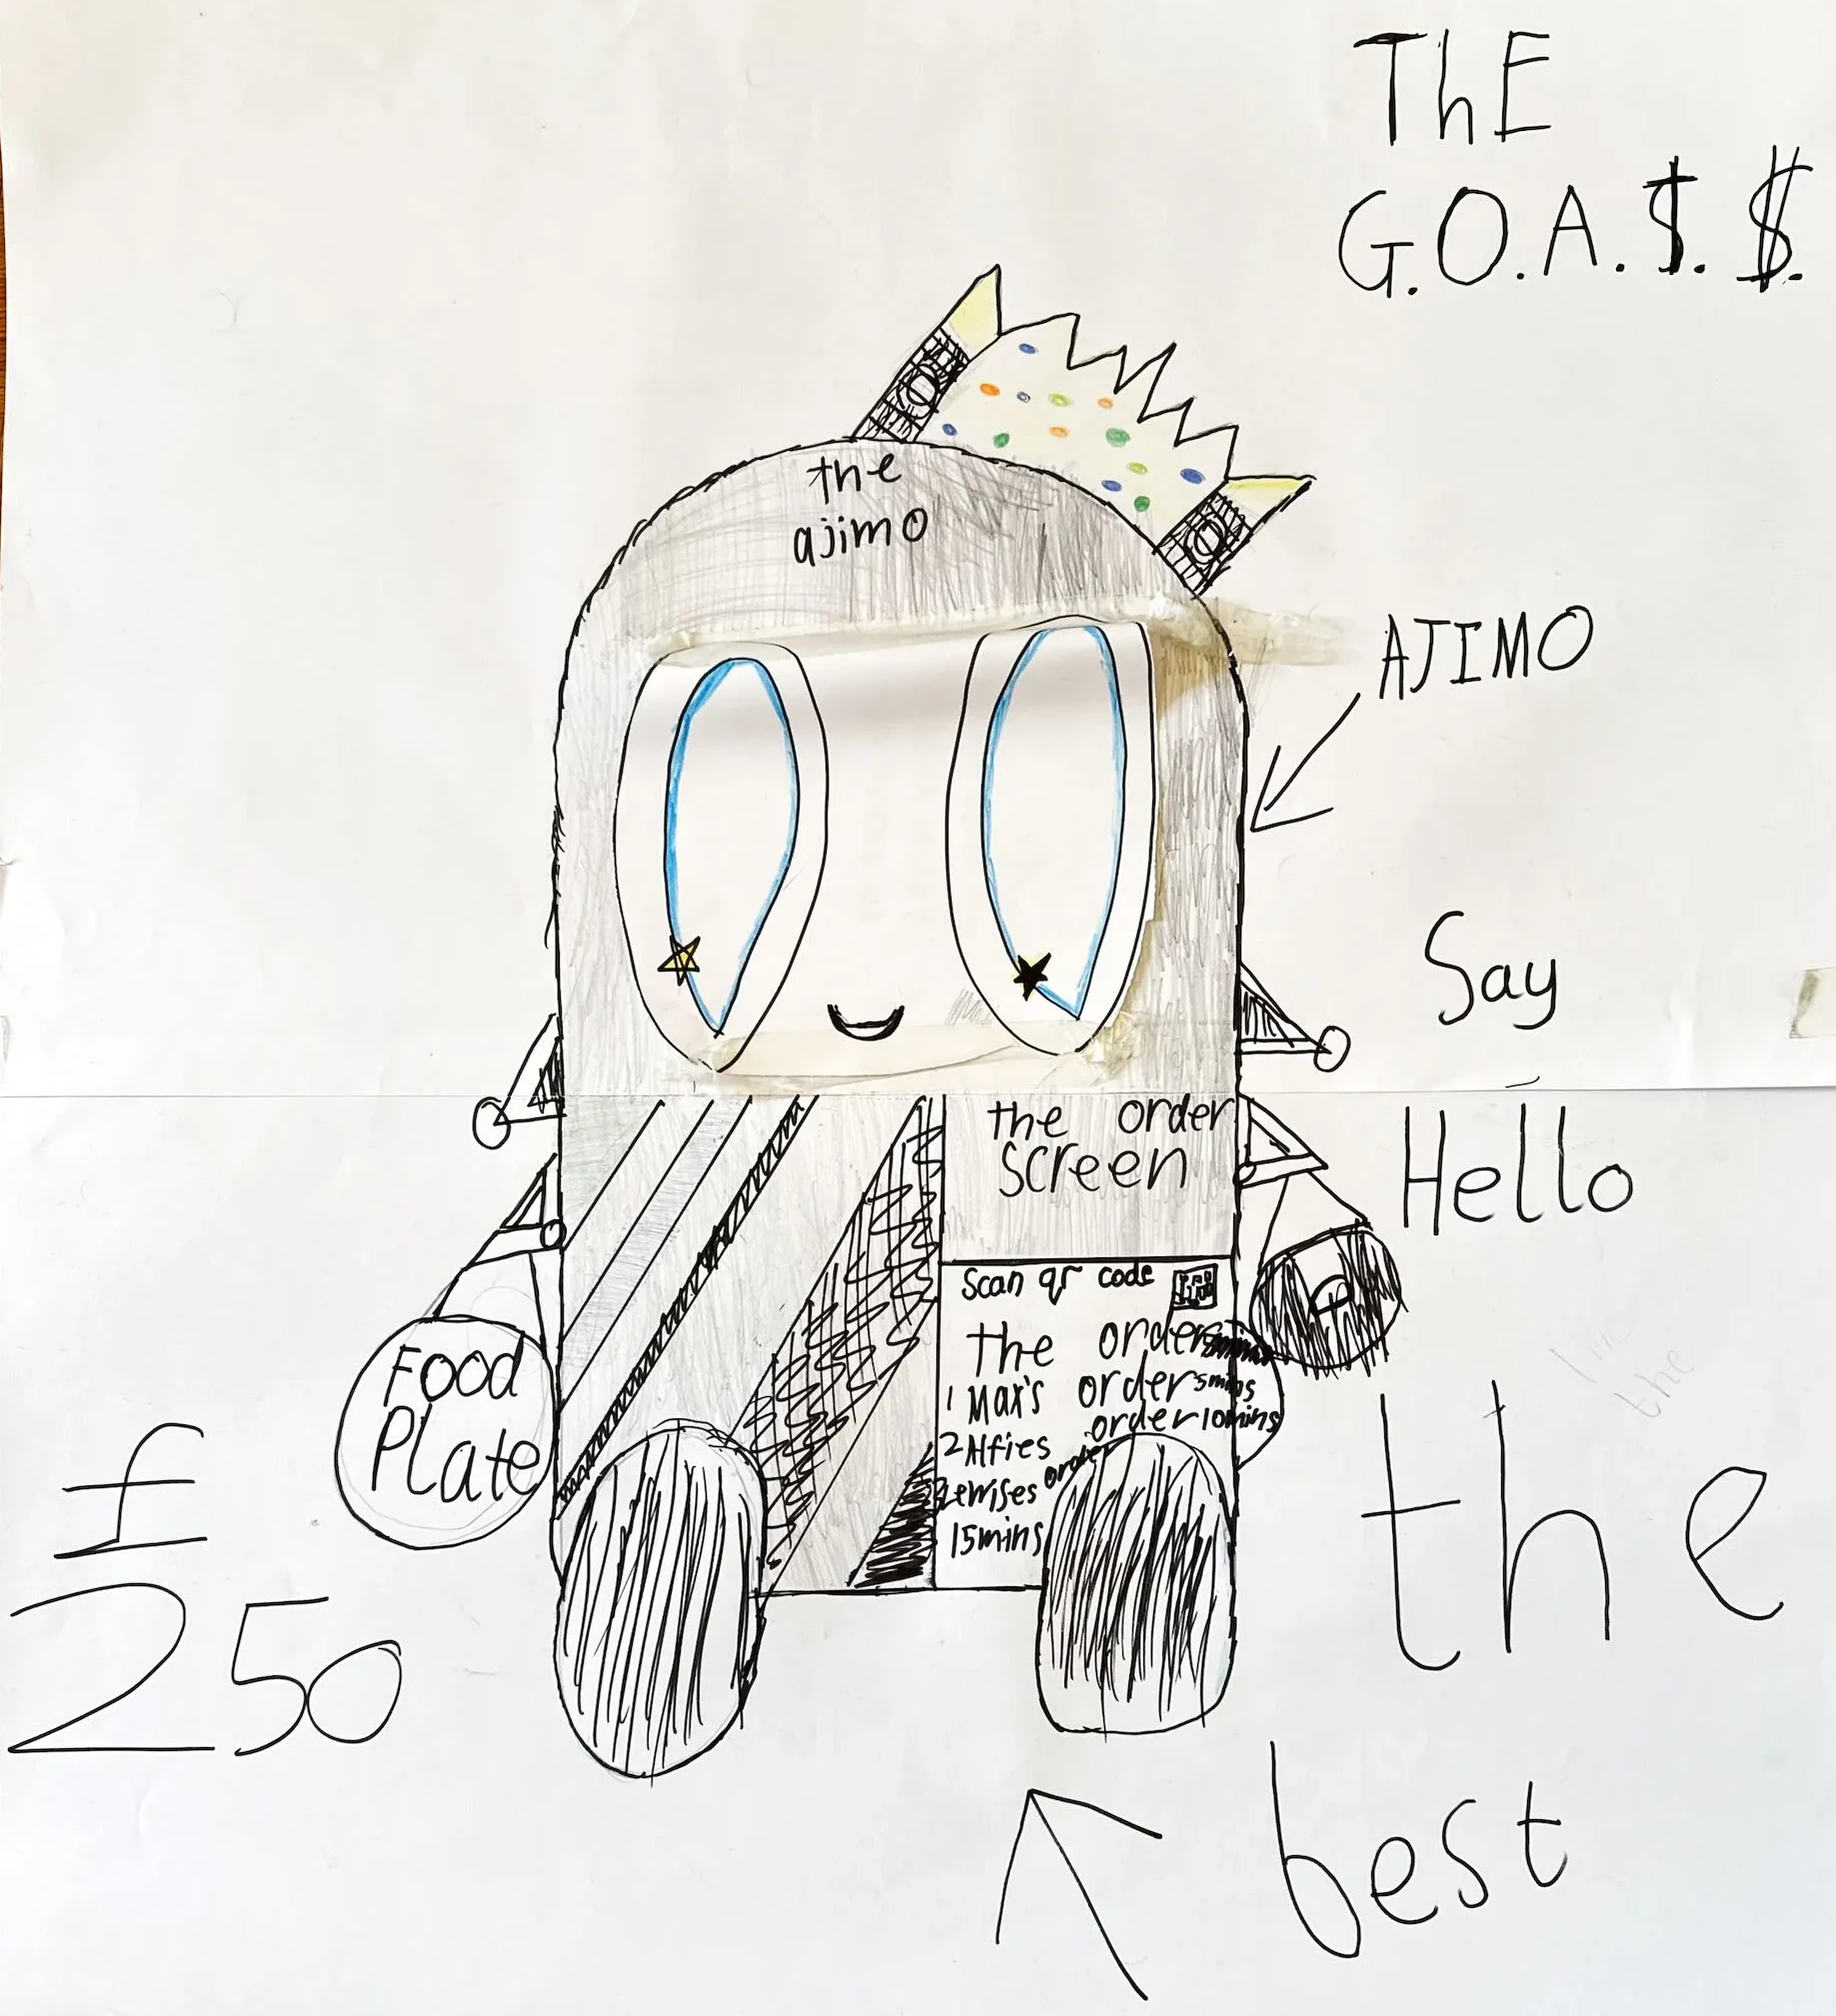 ThE
G.O.A.$.$.
the
ajimo
AJIMO
Say
Hello
the
best
the order
screen
Scan qr code
the orders
1 Max's order 5mins
2 Alfies order 10mins
Lewises order
15mins
FOOD
PLate
£
250